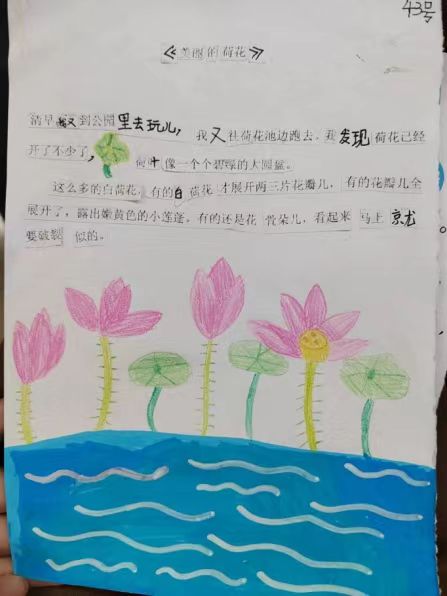 43号
《美丽的荷花》
清早我又到公园里去玩儿，我又往荷花池边跑去。我发现荷花已经
开了不少了，荷叶像一个个碧绿的大圆盘。
这么多的白荷花，有的白荷花才展开两三片花瓣儿，有的花瓣儿全
展开了，露出嫩黄色的小莲蓬。有的还是花骨朵儿，看起来马上就
要破裂似的。